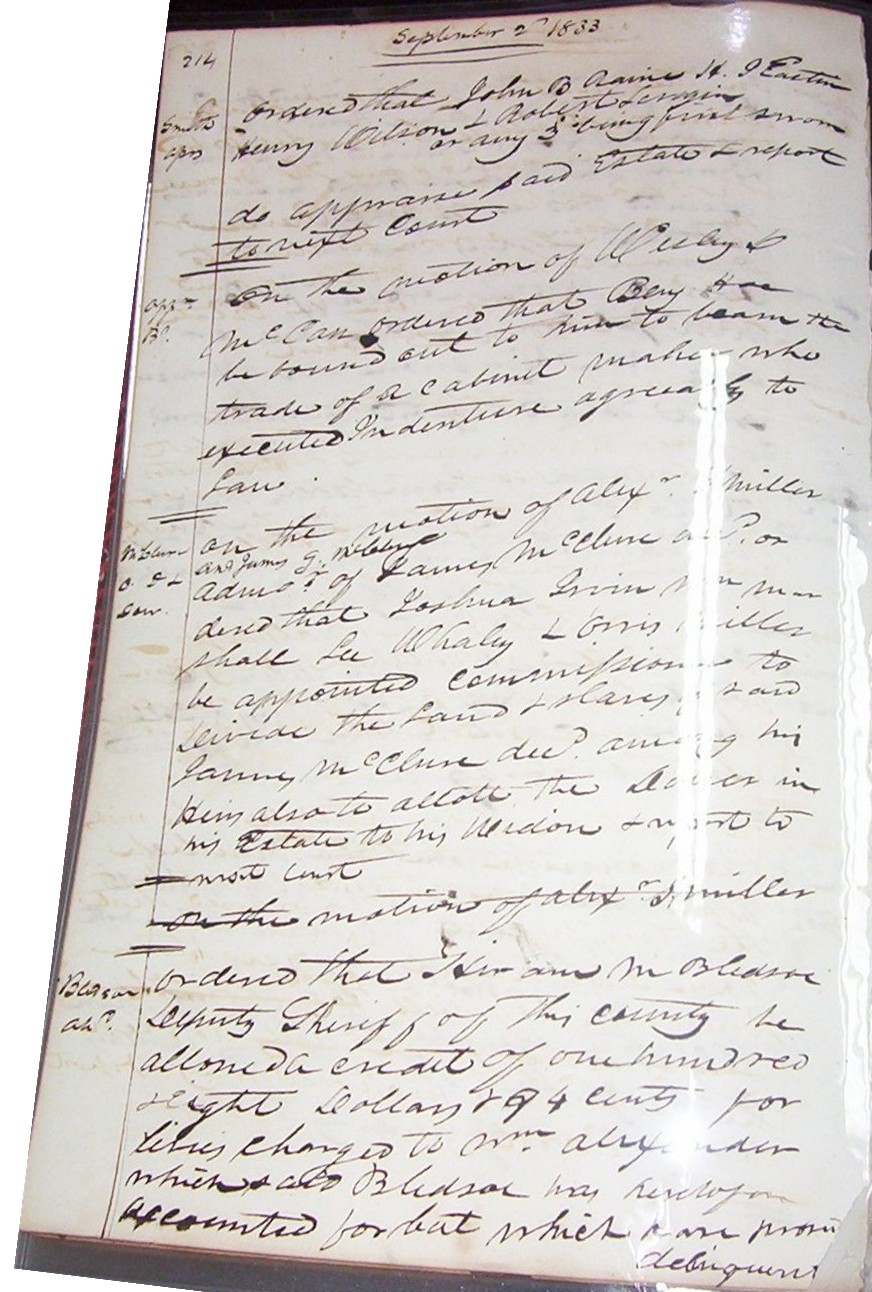 September 2d 1833
214
Smith
aprs
Ordered that John B Raine H. J Easten
Henry Wilson & Robert
or any 3 being first sworn
do appraise said Estate & report
to next Court
On the motion of Wesley
McCan ordered that Benj
be bound out to him to learn the
trade of a Cabinet maker who
executed Indenture agreeably to
Law.
McClure
on the motion of Alexr. Miller
and James G. McClure
Admors of James McClure decd. or
dered that Joshua Irvin Wm Mar
shall Lee Whaley & Orris Miller
be appointed Commissioners to
devide the Land & slaves of said
James McClure decd. among his
Heirs also to allott the Dower in
his Estate to his Widow & report to
next court
on the motion of Alexr. Miller
Bledsoe
Ordered that Hiram M Bledsoe
Deputy Sheriff of this county be
allowed a credit of one hundred
& Eight Dollars & 94 cents for
levies charged to Wm Alexander
which said Bledsoe was heretofore
accounted for but which are
delinquent